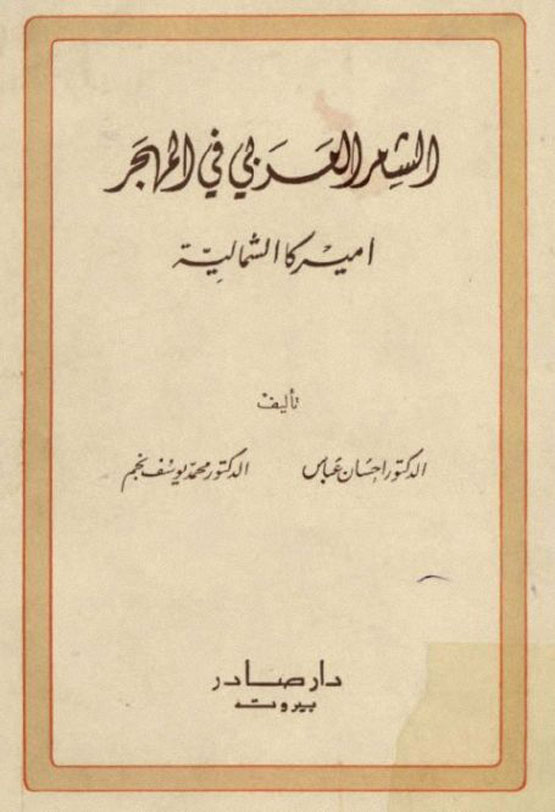 الشعر العربي في المهجر
اميركا الشمالية
تأليف
الدكتور احسان عباس الدكتور محمد يوسف نجم
دار صادر
بيروت